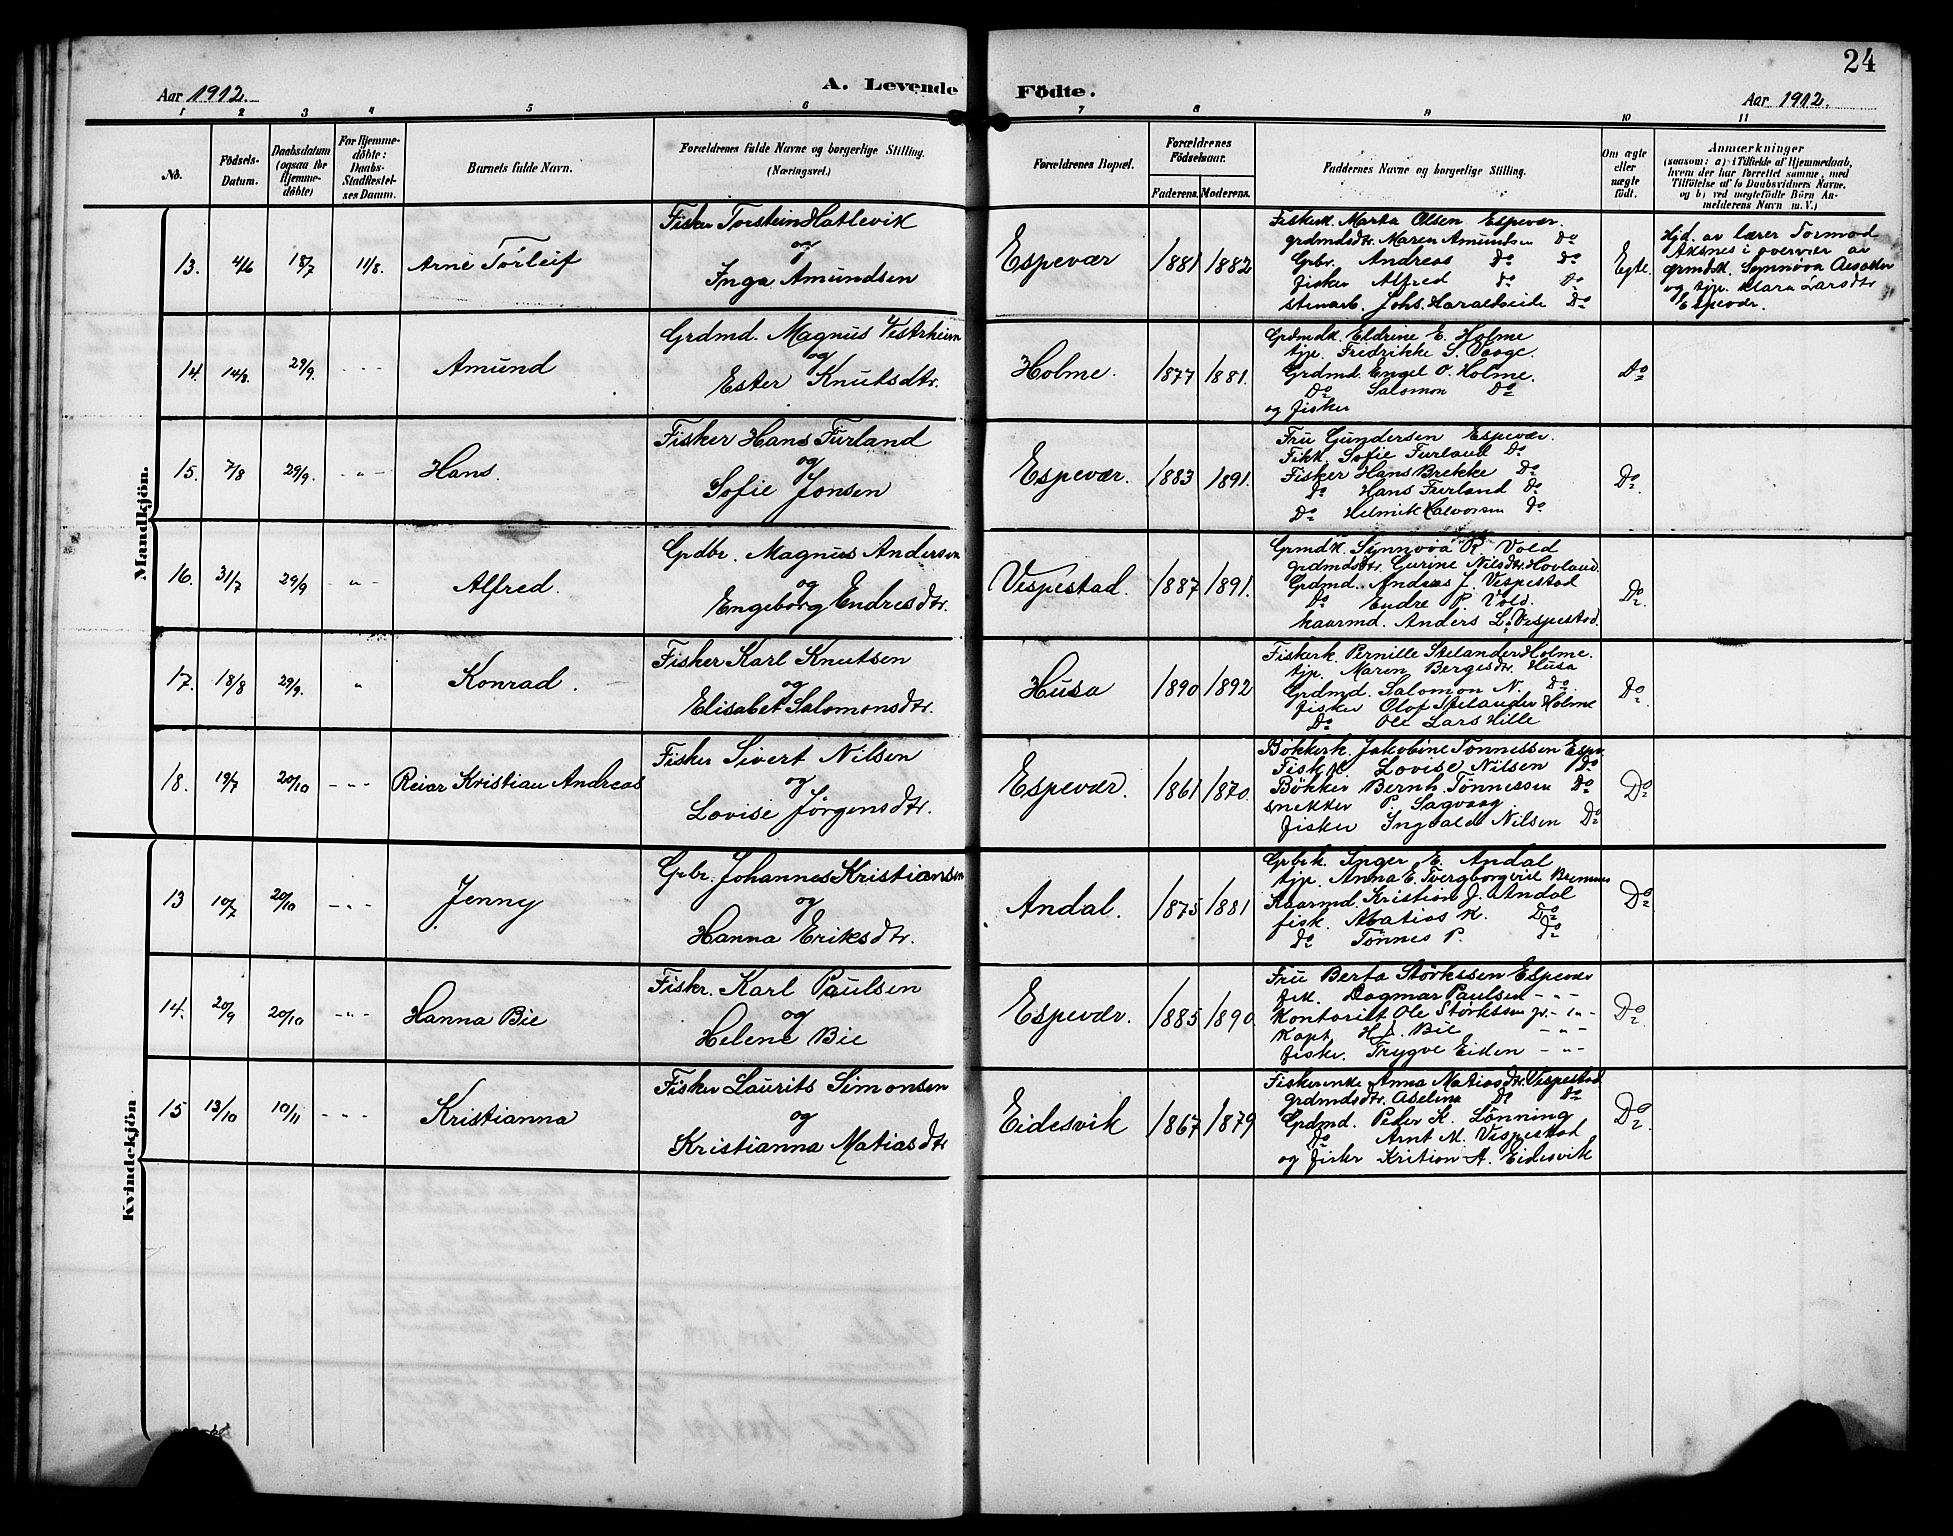 24
Aar 1912.
A. Levende Födte.
Aar 1912.
1 2 3 4 5 6 7 8 9 10 11
No.
Födsels-Datum.
Daabsdatum (ogsaa for Hjemme-döbte)
For Hjemme-döbte: Daabs-Stadfæstel-ses Datum.
Barnets fulde Navn.
Forældrenes fulde Navne og borgerlige Stilling. (Næringsvei.)
Forældrenes Bopæl.
Forældrenes Födselsaar.
Faderens. Moderens.
Faddernes Navne og borgerlige Stilling.
Om ægte eller uægte födt.
Anmærkninger
(saasom: a) i Tilfælde af Hjemmedaab, hvem der har forrettet samme, med Tilföielse af to Daabsvidners Navne, og b) ved uægtefödte Börn An-melderens Navn m. V.)
Mandkjön.
13. 4/6 18/7 11/8. Arne Torleif
Fisker Torstein Hatlevik
og
Inga Amundsen
Espevær 1881 1882
Fiskerk. Marta Olsen Espevær.
grdmdsdtr. Maren Amundsen Do
Grbr. Andreas Do Do
fisker Alfred Do Do
stenarb. Johs. Haraldseide Do
Egte
Hjd. av lærer Tormod
Aksnes i overvær av
grmdk. Synnøva
og tjp. Klara Larsdtr
Espevær.
14. 14/8. 29/9. - - - Amund
Grdmd. Magnus Vestrheim
og
Ester Knutsdtr.
Holme. 1877 1881.
Grdmdk. Eldrine E. Holme
tjp. Fredrikke S. Vaage.
Grdmd. Engel O. Holme.
Do Salomon Do
og fisker
Do
15. 7/8 29/9. - " - Hans.
Fisker Hans Furland
og
Sofie Jonsen
Espevær. 1883 1891.
Fru Gundersen Espevær.
Fikk. Sofie Furland Do
Fisker Hans Brekke Do
Do Hans Furland Do
Do Helmik Halvorsen Do
Do.
16. 31/7 29/9 - " - Alfred.
Grdbr. Magnus Andersen
og
Engeborg Endresdtr.
Vespestad. 1887 1891.
Grmdk. Synnøva R. Vold
grdmdsdtr. Gurine Nilsdtr. Hovland.
Grdmd. Andreas J. Vespestad
Do Endre P. Vold.
kaarmd. Anders L. Vespestad.
Do.
17. 18/8 29/9. " Konrad.
Fisker Karl Knutsen
og
Elisabet Salomonsdtr.
Husa 1890 1892
Fiskerk. Pernille Stelander Holme.
tjp. Maren Bergesdtr. Husa
Grdmd. Salomon N. Do
fisker Olof Stelander Holme
Do Ole Lars Hille
Do
18. 19/7 20/10 - " - Reiar Kristian Andreas
Fisker Sivert Nilsen
og
Lovise Jørgensdtr.
Espevær. 1861 1870.
Bøkkerk. Jakobine Tønnessen Espv.
Fisk k. Lovise Nilsen Do
Bøkker Bernh. Tønnessen Do
snekker P. Sagvaag
fisker Ingvald Nilsen Do
Do
Kvindekjön
13 10/7 20/10 - " - Jenny
Grbr. Johannes Kristiansen
og
Hanna Eriksdtr.
Andal. 1875 1881
Grbrk. Inger E. Andal
tjp. Anna E. Tvergborgvik Bremnes
Kaarmd. Kristian J. Andal
fisk. Matias K. Do
Do Tønnes P. Do
Do
14. 20/9 20/10 - " - Hanna Bie
Fiskr. Karl Paulsen
og
Helene Bie
Espevær. 1885 1890.
Fru Berta Størkssen Espevær
fik. Dagmar Paulsen - " -
Kontorist Ole Størkssen jr. - " -
Kapt. H. Bie - " -
fisker. Trygve Eiden - " -
Do.
15 13/10 10/11 - - - Kristianna
Fisker Laurits Simonsen
og
Kristianna Matiasdtr
Eidesvik 1867 1879
Fiskerenke Anna Matiasdtr. Vespestad
grdmdsdtr. Aselina Do Do
Grdmd. Peder K. Lønning
Do Arnt M. Vespestad
og fisker Kristian A. Eidesvik
Do.